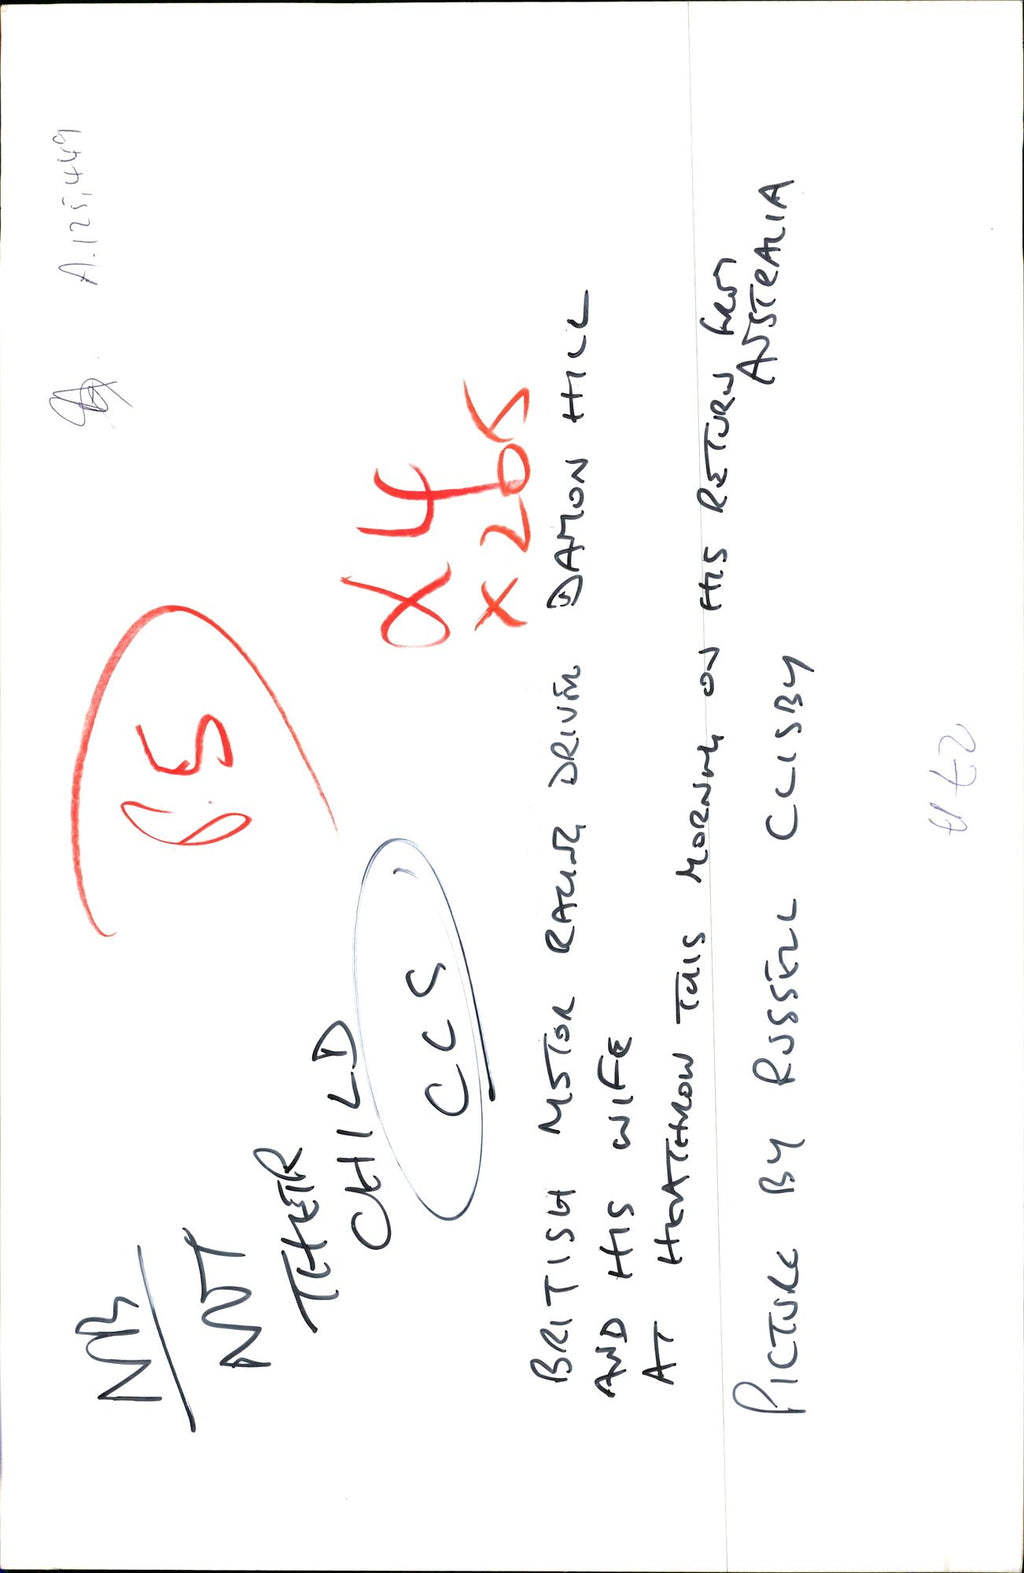 A.125,449
NB
NOT
THEIR
CHILD
CCS
X4
X20S
BRITISH MOTOR RACING DRIVER DAMON HILL
AND HIS WIFE
AT HEATHROW THIS MORNING ON HIS RETURN FROM
AUSTRALIA
PICTURE BY RUSSELL CLISBY